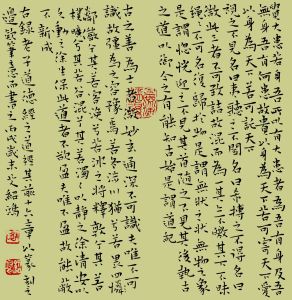 患若身吾所以有大患者為吾有身及吾
無身吾有何患故貴以身為天下若可寄天下愛
以身為天下若可託天下
視之不見名曰夷聽之不聞名曰希搏之不得名曰
微此三者不可致詰故混而為一其上不皦其下不昧
繩繩不可名復歸於無物是謂無狀之狀無物之象
是謂惚恍迎之不見其首隨之不見其後執古
之道以御今之有能知古始是謂道紀
古之善為士者微妙玄通深不可識夫唯不可
識故強為之容豫焉若冬涉川猶兮若畏四鄰
儼兮其若容渙兮若冰之將釋敦兮其若
樸曠兮其若谷混兮其若濁孰能濁以靜之徐清孰能安以
久動之徐生保此道者不欲盈夫唯不盈故能蔽
不新成
古錄老子道德經之道經其第十
筆意而書之